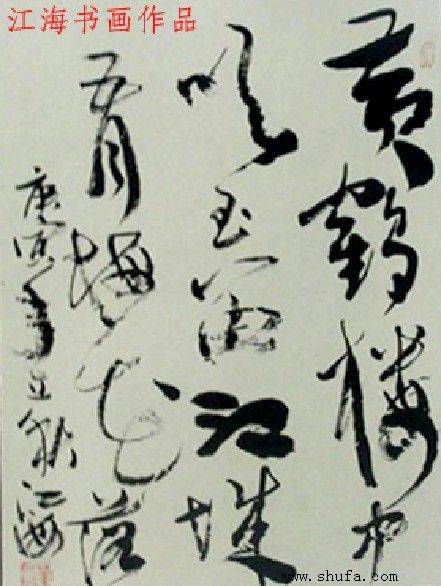 江海书画作品
黄鹤楼中
吹玉笛江城
五月梅花落
庚寅年立秋江海
www.shufa.com